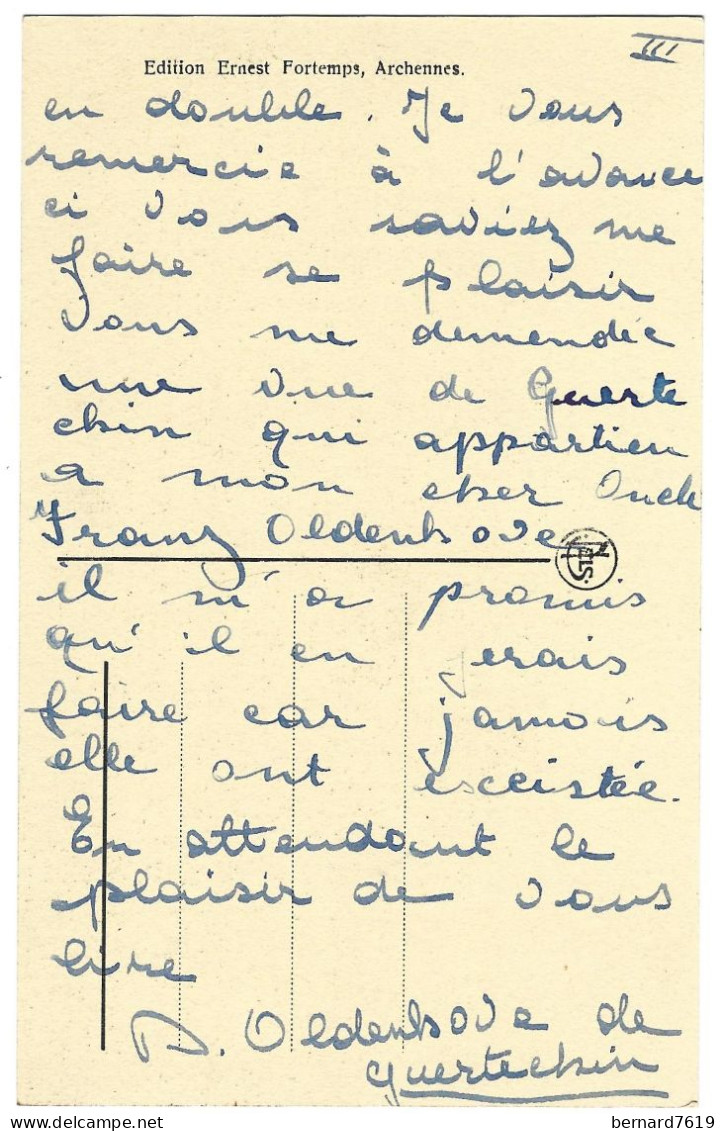 III
Edition Ernest Fortemps, Archennes.
en double. Je vous
remercie à l'avance
ci vous saviez me
faire se plaisir
Vous me demendée
une vue de Querte
chin qui appartien
a mon cher Oncle
Franz Oldenhove
NELS
il m'a promis
qu'il en ferais
faire car jamais
elle ont esceistée.
En attendant le
plaisir de vous
lire
Oldenhove de
Quertechin
bernard7619